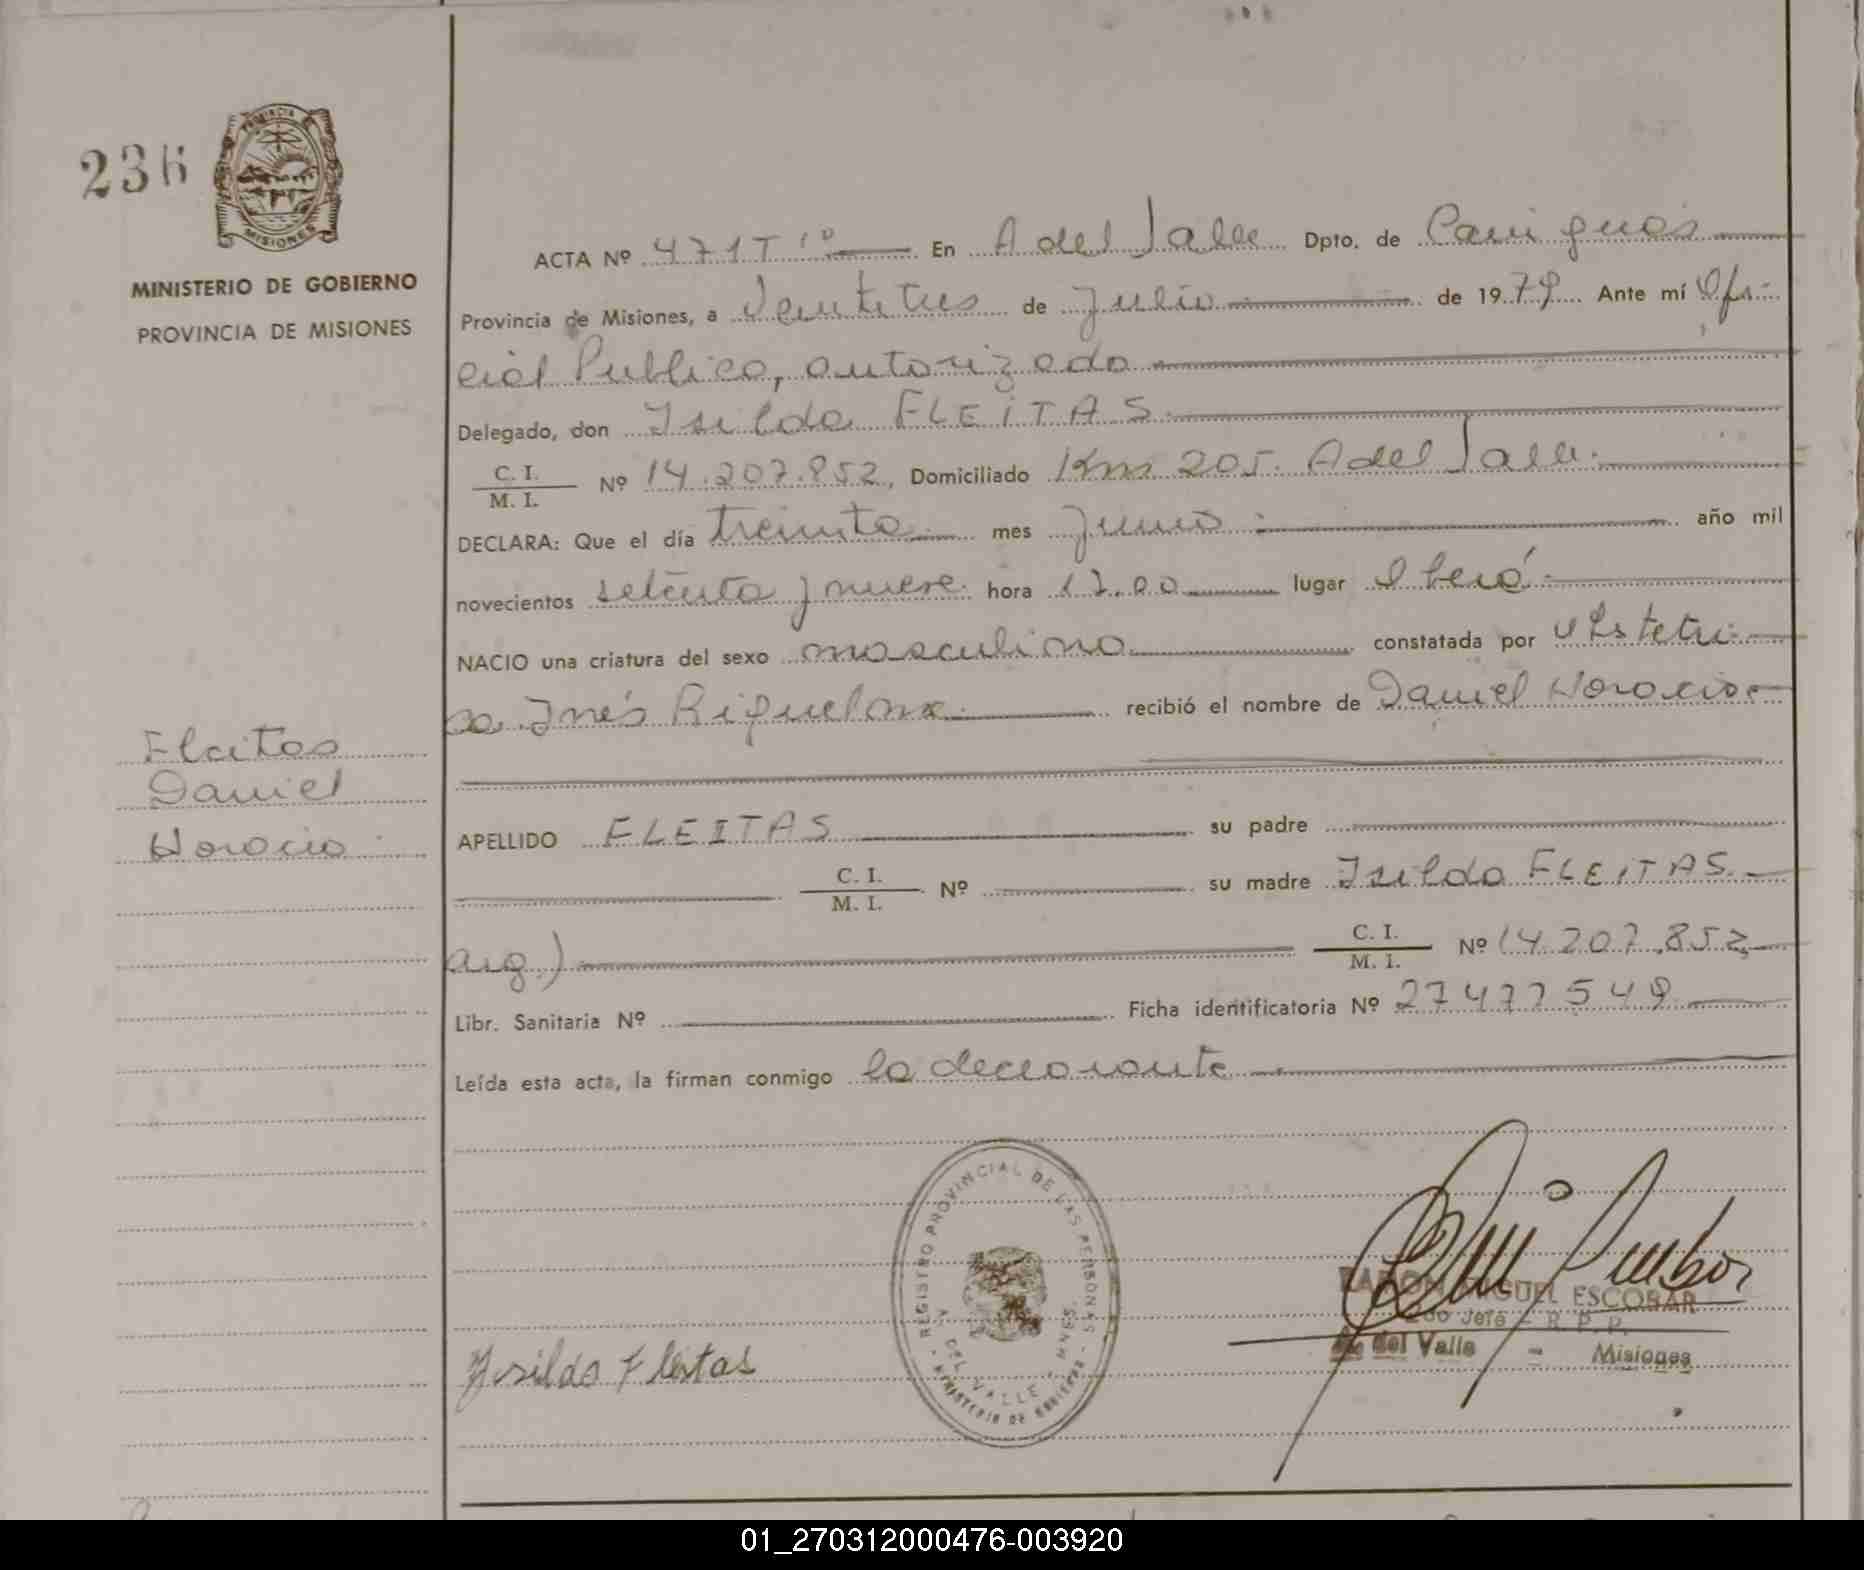 236
PROVINCIA DE
MISIONES
MINISTERIO DE GOBIERNO
PROVINCIA DE MISIONES
ACTA Nº 471 Tº En A del Valle Dpto. de Cainguás
Provincia de Misiones, a Veintitres de Julio de 1979 Ante mí Ofi-
cial Publico, autorizado
Delegado, don Isilda FLEITAS
C. I.
M. I. Nº 14.207.852, Domiciliado Km 205. A del Valle.
DECLARA: Que el día treinta mes Junio año mil
novecientos setenta y nueve hora 17.00 lugar Oberá
NACIO una criatura del sexo masculino constatada por Obstetri-
ca Inés Riquelme recibió el nombre de Daniel Horacio
Fleitas
Daniel
Horacio
APELLIDO FLEITAS su padre
C. I.
M. I. Nº su madre Isilda FLEITAS
arg.) C. I.
M. I. Nº 14.207.852
Libr. Sanitaria Nº Ficha identificatoria Nº 27477549
Leída esta acta, la firman conmigo la declarante
REGISTRO PROVINCIAL DE LAS PERSONAS
A. DEL VALLE - MNES.
MINISTERIO DE GOBIERNO
RAMON MIGUEL ESCOBAR
Jefe - R. P. P.
A. del Valle - Misiones
Yrsilda Fleitas
01_270312000476-003920